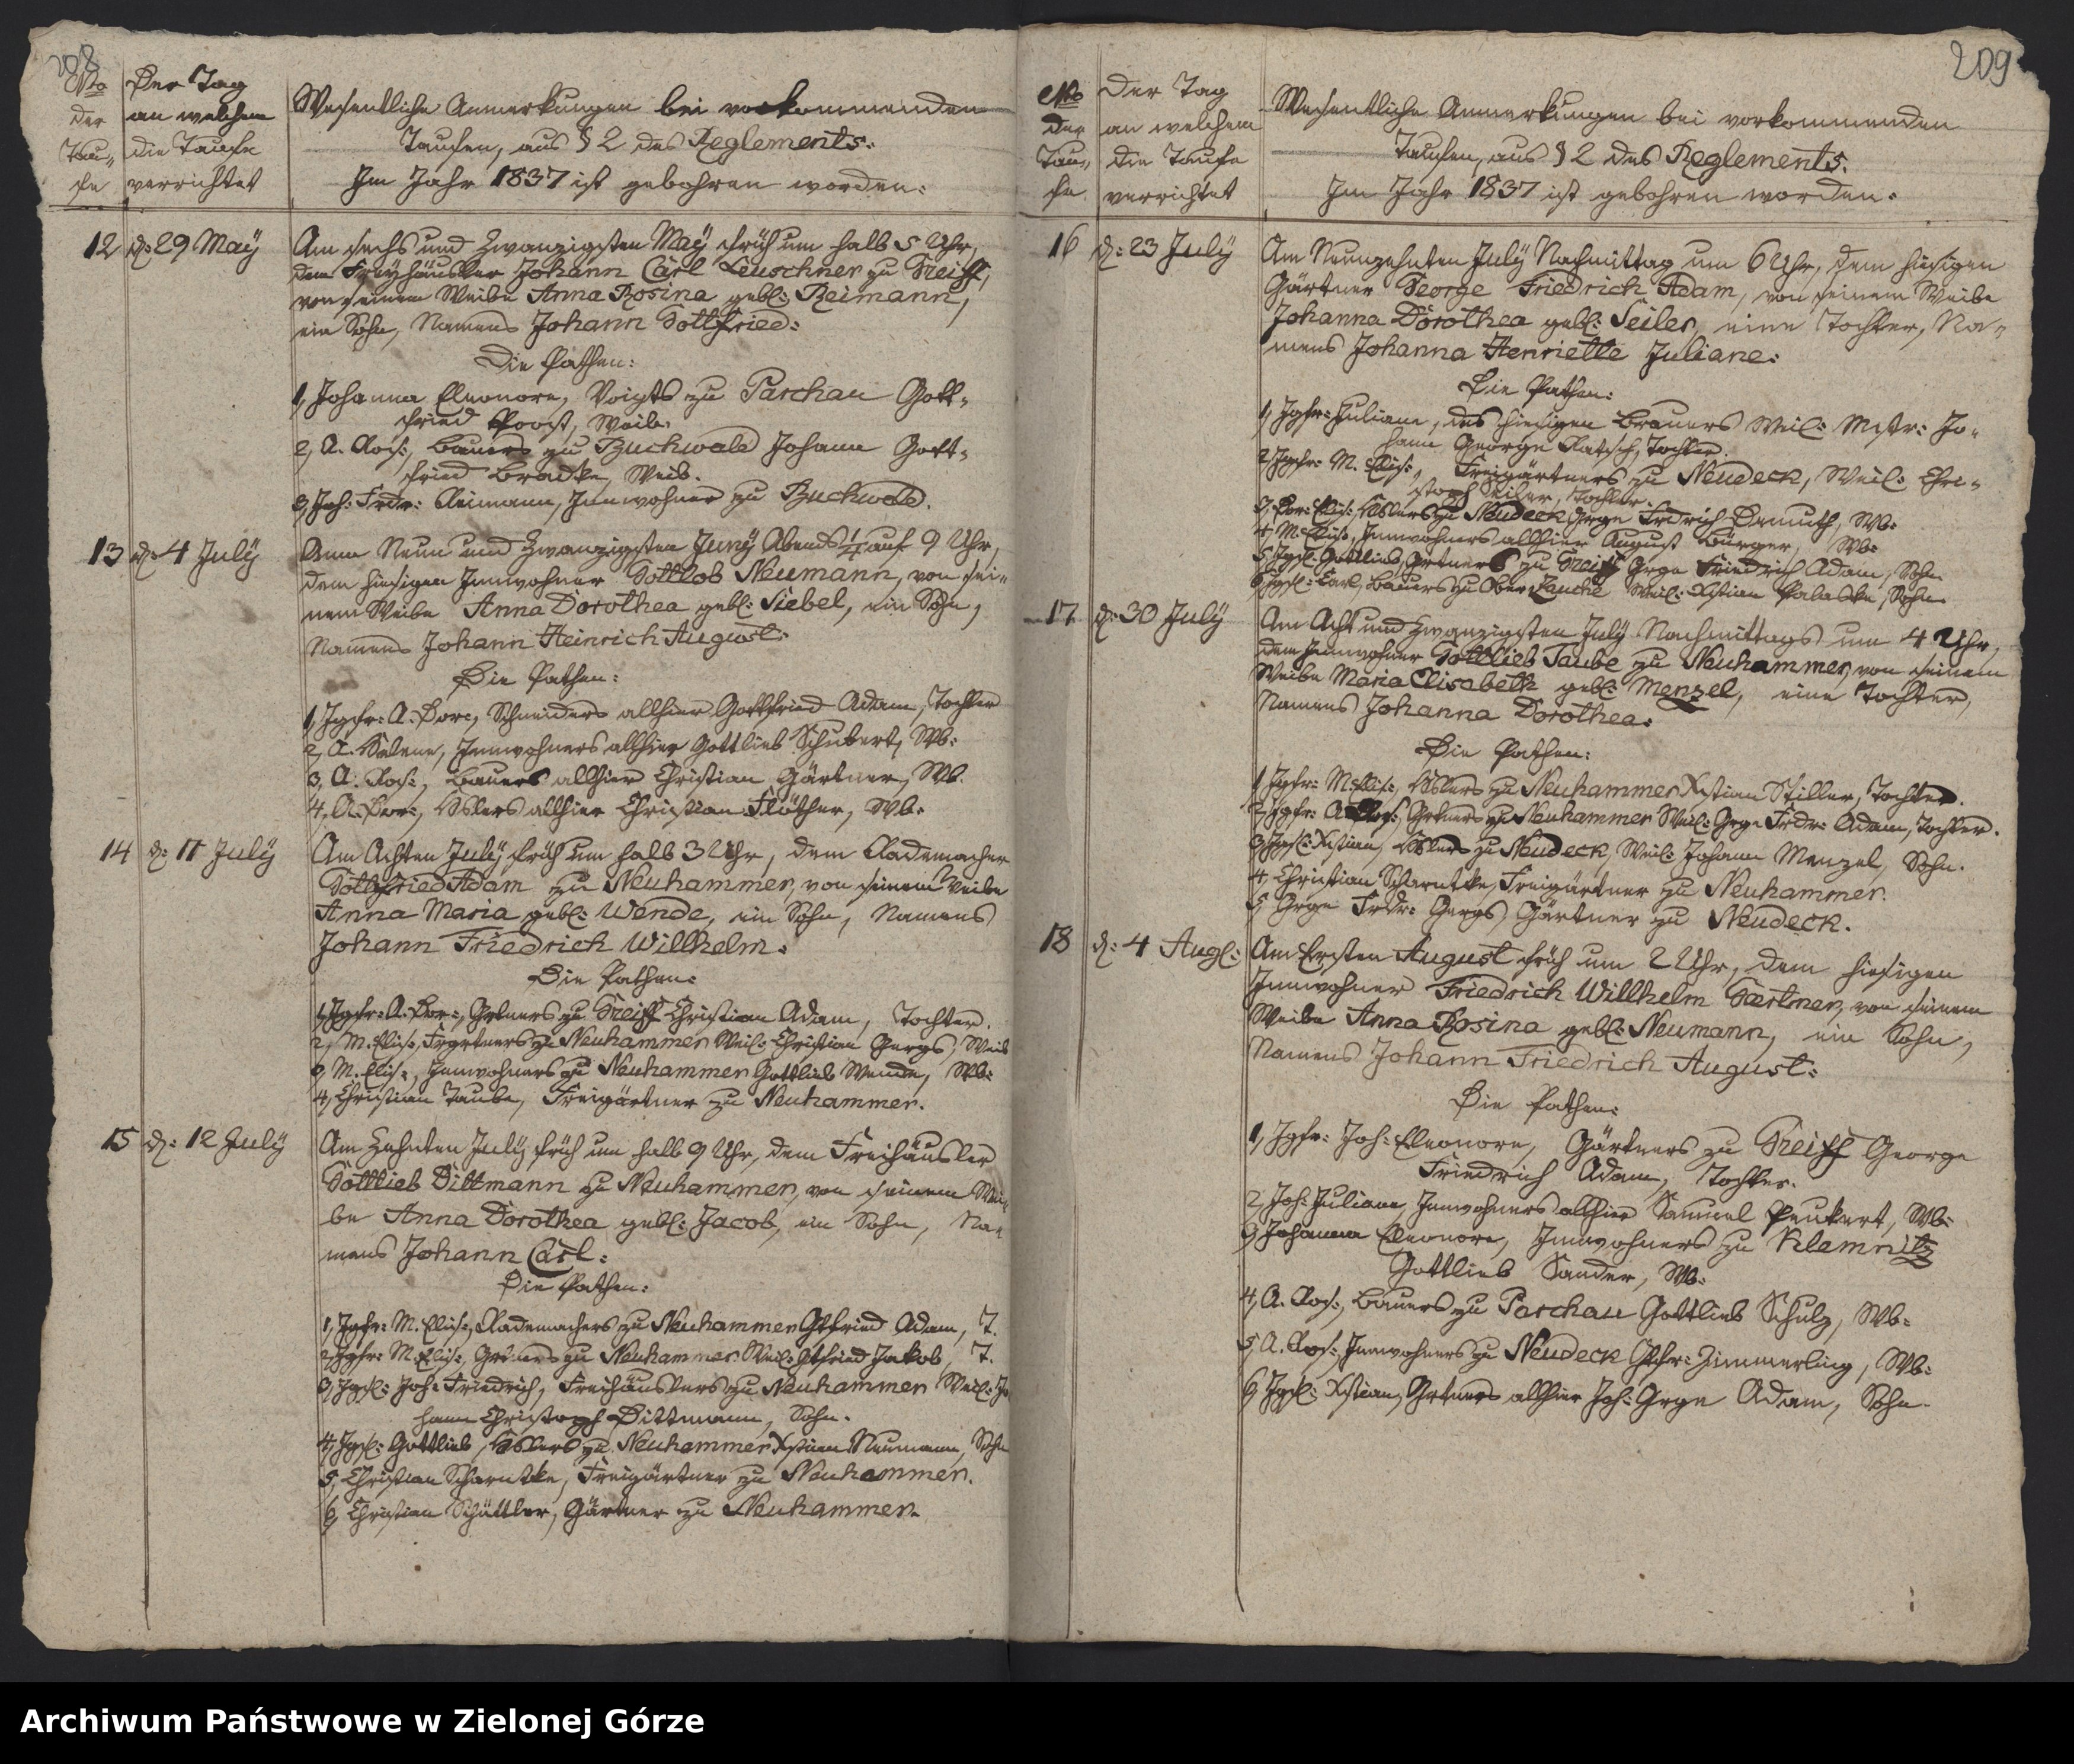 208
No
der
Tau-
fe
Der Tag
an welchem
die Taufe
verrichtet
Wesentliche Anmerkungen bei vorkommenden
Taufen, aus § 2 des Reglements.
Im Jahr 1837 ist gebohren worden:
12 d: 29 Maÿ
Am sechs und Zwanzigsten Maÿ früh um halb 5 Uhr,
dem Freyhäusler Johann Carl Leuschner zu Greiff,
von seinem Weibe Anna Rosina gebl: Reimann,
ein Sohn, Namens Johann Gottfried:
Die Pathen:
1, Johanna Eleonore, Voigts zu Parchau Gott-
fried Weib.
2, A. Ros:, Bauers zu Buchwald Johann Gott-
fried Bradke, Weib.
3, Joh: Frdr: Reimann, Innwohner zu Buchwald.
13 d: 4 July
Am Neun und Zwanzigsten Junÿ Abends 1/4 auf 9 Uhr,
dem hiesigen Innwohner Gottlob Neumann, von sei-
nem Weibe Anna Dorothea gebl: Siebel, ein Sohn,
Namens Johann Heinrich August:
Die Pathen:
1, Jgfr: A. Dor:, Schneiders allhier Gottfried Adam, Tochter
2, A. Helene, Innwohners allhier Gottlieb Schubert, Wb:
3, A. Ros:, Bauers allhier Christian Gärtner, Wb.
4, A. Dor:, Hslers allhier Christian Flöther, Wb:
14 d: 11 July
Am Achten Julÿ früh um halb 3 Uhr, dem Rademacher
Gottfried Adam zu Neuhammer, von seinem Weibe
Anna Maria gebl: Wende, ein Sohn, Namens
Johann Friedrich Willhelm:
Die Pathen:
1, Jgfr: A. Dor:, Grtners zu Greiff Christian Adam, Tochter.
2, M. Elis:, Frgrtners zu Neuhammer Weil: Christian Gergs, Weib
3, M. Elis:, Innwohners zu Neuhammer Gottlieb Wende, Wb:
4, Christian Taube, Freigärtner zu Neuhammer.
15 d: 12 July
Am Zehnten Julÿ früh um halb 9 Uhr, dem Freihäusler
Gottlieb Dittmann zu Neuhammer, von seinem Wei-
be Anna Dorothea gebl: Jacob, ein Sohn, Na-
mens Johann Carl:
Die Pathen:
1, Jgfr: M. Elis:, Rademachers zu Neuhammer Gtfried Adam, T.
2, Jgfr: M. Elis:, Grtners zu Neuhammer Weil: Gtfried Jakob, T.
3, Jgsl: Joh: Friedrich, Freihäuslers zu Neuhammer Weil: Jo
hann Christoph Dittmann, Sohn.
4, Jgsl: Gottlieb, Hslers zu Neuhammer Xstian Neumann, Sohn
5, Christian Scharntke, Freigärtner zu Neuhammer.
6, Christian Schüttler, Gärtner zu Neuhammer.
209
No
der
Tau-
fe
Der Tag
an welchem
die Taufe
verrichtet
Wesentliche Anmerkungen bei vorkommenden
Taufen, aus § 2 des Reglements.
Im Jahr 1837 ist gebohren worden.
16 d: 23 July
Am Neunzehnten Julÿ Nachmittag um 6 Uhr, dem hiesigen
Gärtner George Friedrich Adam, von seinem Weibe
Johanna Dorothea gebl: Seiler, eine Tochter, Na-
mens Johanna Henriette Juliane:
Die Pathen:
1, Jgfr: Juliane, des hiesigen Brauers Weil: Mstr: Jo-
hann George Tochter.
2, Jgfr: M. Elis:, Freigärtners zu Neudeck, Weil: Chri-
stoph Seiler, Tochter.
3, Dor: Elis:, Hslers zu Neudeck Grge Frdrich Demuth, Wb:
4, M. Elis:, Innwohners allhier August Bürger, Wb:
5, Jgsl: Gottlieb, Grtners zu Greiff Grge Friedrich Adam, Sohn.
6, Jgsl: Carl, Bauers zu Ober Zauche Weil: Xstian Sohn.
17 d: 30 July
Am Acht und Zwanzigsten Julÿ Nachmittags um 4 Uhr,
dem Innwohner Gottlieb Taube zu Neuhammer, von seinem
Weibe Maria Elisabeth gebl: Menzel, eine Tochter,
Namens Johanna Dorothea:
Die Pathen:
1, Jgfr: M. Elis:, Hslers zu Neuhammer Xstian Stiller, Tochter.
2, Jgfr: A. Ros:, Grtners zu Neuhammer Weil: Grge Frdr: Adam, Tochter.
3, Jgsl: Xstian, Hslers zu Neudeck, Weil: Johann Menzel, Sohn.
4, Christian Scharntke, Freigärtner zu Neuhammer.
5, Grge Frdr: Gergs, Gärtner zu Neudeck.
18 d: 4 Augl:
Am Ersten August früh um 2 Uhr, dem hiesigen
Innwohner Friedrich Willhelm Gærtner, von seinem
Weibe Anna Rosina gebl: Neumann, ein Sohn,
Namens Johann Friedrich August:
Die Pathen:
1, Jgfr: Joh: Eleonore, Gärtners zu Greiff George
Friedrich Adam, Tochter.
2, Joh: Juliane, Innwohners allhier Samuel Peukert, Wb:
3, Johanna Eleonore, Innwohners zu Klemnitz
Gottlieb Sander, Wb:
4, A. Ros:, Bauers zu Parchau Gottlieb Schulz, Wb:
5, A. Ros:, Innwohners zu Neudeck Gtfr: Zimmerling, Wb:
6, Jgsl: Xstian, Grtners allhier Joh: Grge Adam, Sohn.
Archiwum Państwowe w Zielonej Górze